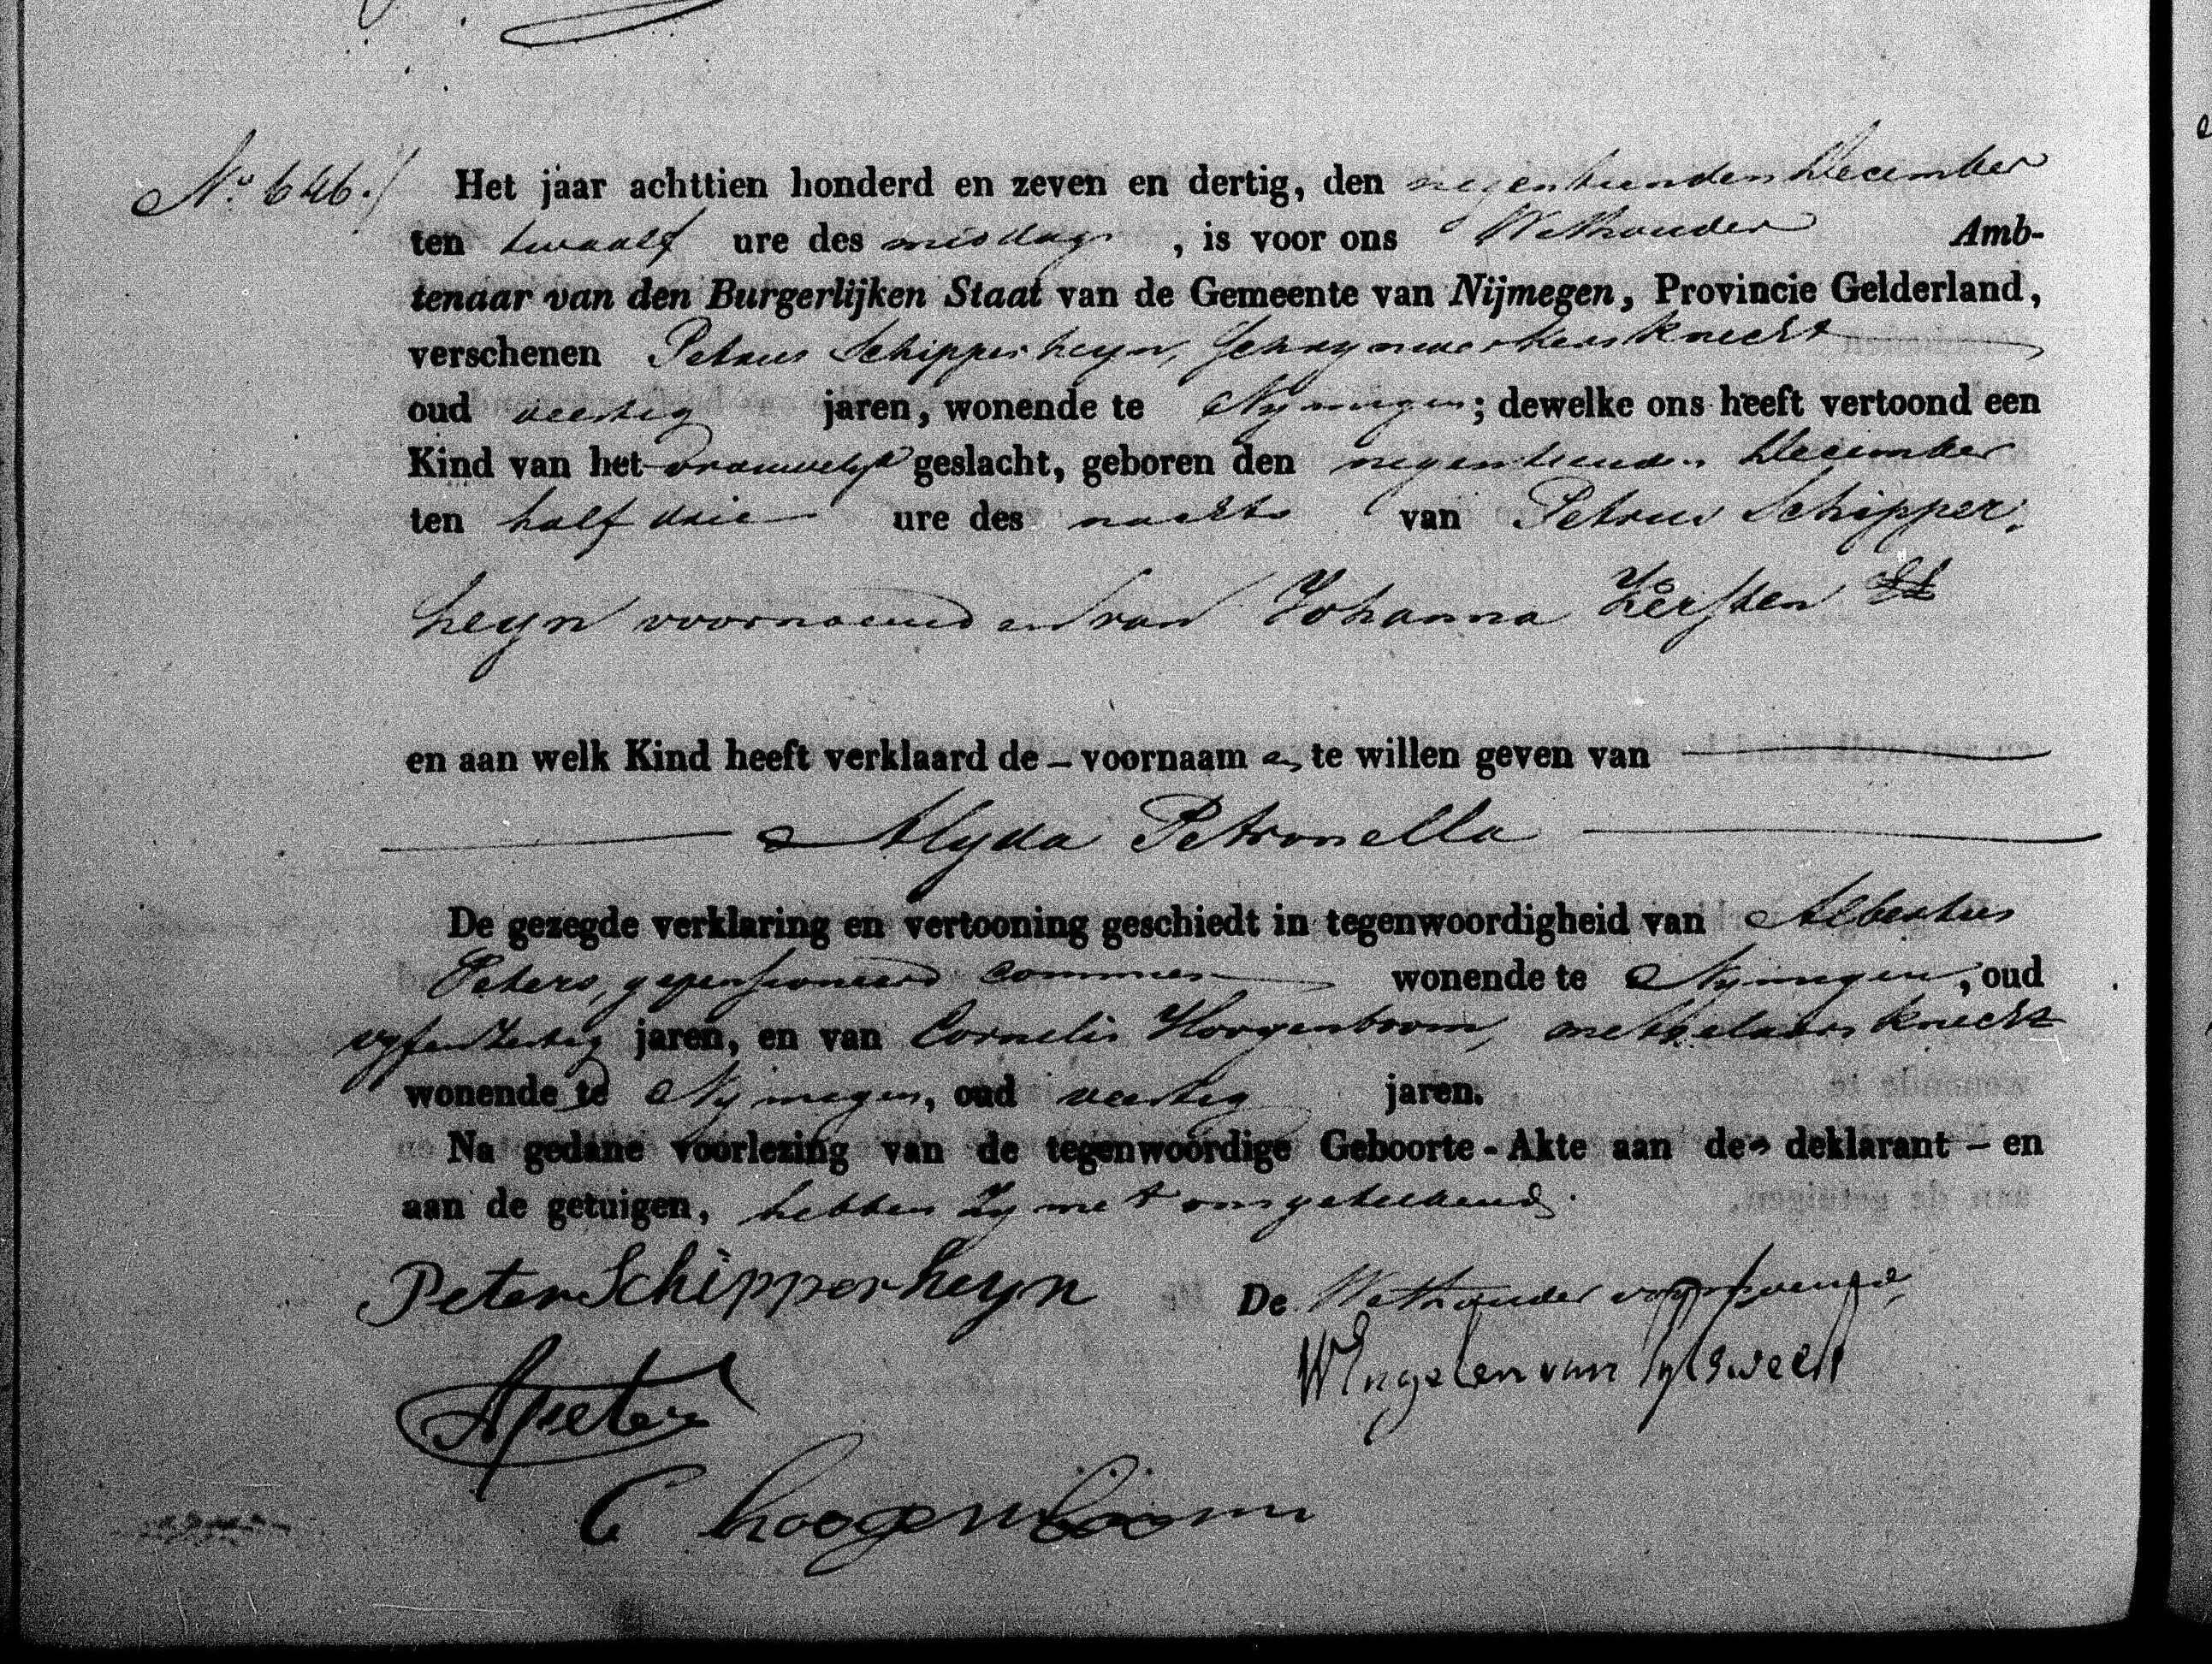 No. 646.
Het jaar achttien honderd en zeven en dertig, den negentienden December
ten twaalf ure des middags, is voor ons Wethouder Amb-
tenaar van den Burgerlijken Staat van de Gemeente van Nijmegen, Provincie Gelderland,
verschenen Petrus Schipperheyn, schrynwerkersknecht
oud veertig jaren, wonende te Nymegen; dewelke ons heeft vertoond een
Kind van het vrouwelyk geslacht, geboren den negentienden December
ten half drie ure des nachts van Petrus Schipper-
heyn voornoemd en van Johanna Kersten
en aan welk Kind heeft verklaard de - voornaam en te willen geven van
Alyda Petronella
De gezegde verklaring en vertooning geschiedt in tegenwoordigheid van Albertus
Peters, gepensioneerd commies wonende te Nymegen, oud
vyfendertig jaren, en van Cornelis Hoogenboom, metzelaars knecht
wonende te Nymegen, oud veertig jaren.
Na gedane voorlezing van de tegenwoordige Geboorte-Akte aan den deklarant - en
aan de getuigen, hebben zy met ons geteekend.
Peter Schipperheyn De Wethouder voornoemd,
APeters W Engelen van Pylsweert
C hoogenboom